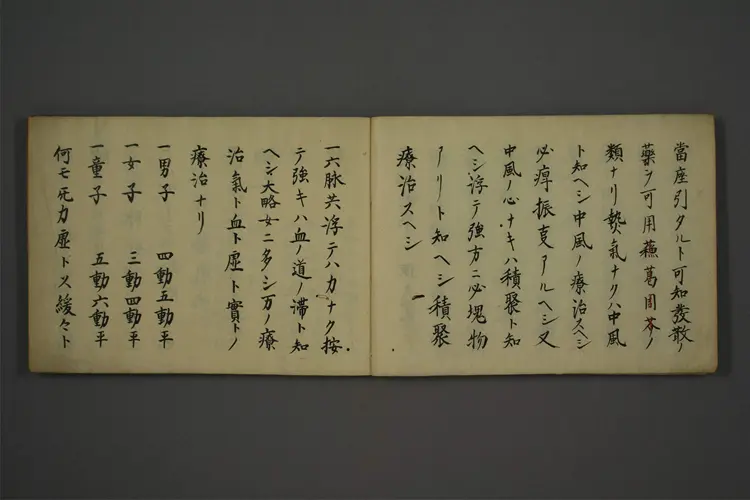 當座引タルト可知發散ノ
藥ヲ可用蘓葛閆芩ノ
類ナリ熱氣ナクハ中風
ト知ヘシ中風ノ療治スヘシ
必痺振戞アルヘシ又
中風ノ心ナキハ積聚ト知
ヘシ浮テ強方ニ必塊物
アリト知ヘシ積聚
療治スヘシ
一六脉共浮テハカナク按
テ強キハ血ノ道ノ滞ト知
ヘシ大略女ニ多シ万ノ療
治氣ト血ト虚ト實トノ
療治ナリ
一男子 四動五動平
一女子 三動四動平
一童子 五動六動平
何モ死力虚トス緩々ト